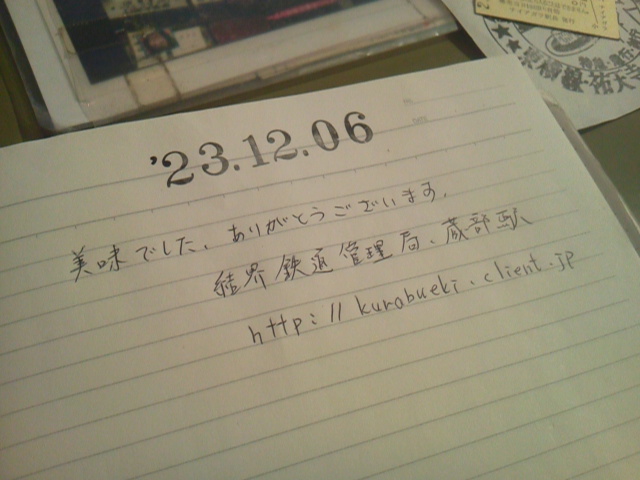 '23.12.06
美味でした、ありがとうございます。
結界鉄道管理局、蔵部駅
http://kurobueki.client.jp